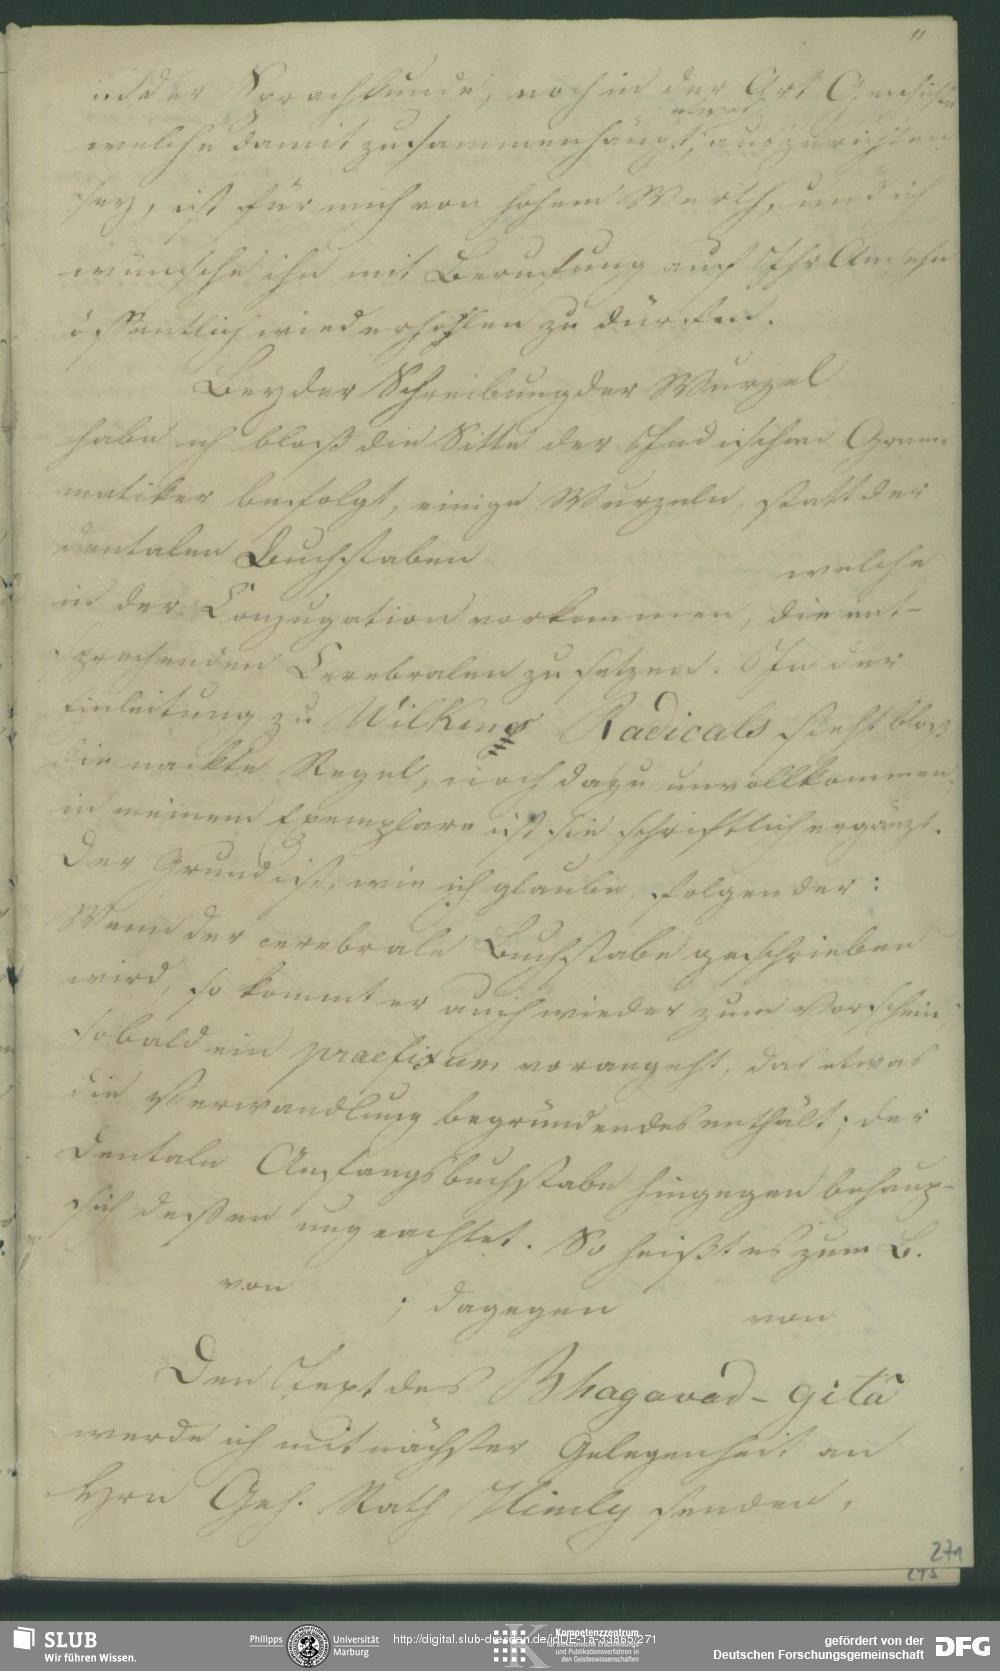 "
in der Sprachkunde, noch in der Art Geschichte
etwas
welche damit zusammenhängt, auszurichten
sey, ist für mich von hohem Werth, und ich
wünsche ihn mit Berufung auf Ihr Ansehn
öffentlich wiederhohlen zu dürfen.
Bey der Schreibung der Wurzel
habe ich bloß die Sitte der Indischen Gram-
matiker befolgt, einige Wurzeln, statt der
dentalen Buchstaben
welche
in der Conjugation vorkommen, die ent-
sprechenden Cerebralen zu setzen. In der
Einleitung zu Wilkins Radicals steht bloß
die nackte Regel, noch dazu unvollkommen;
in meinem Exemplare ist sie schriftlich ergänzt.
Der Grund ist, wie ich glaube, folgender:
Wenn der cerebrale Buchstabe geschrieben
wird, so kommt er auch wieder zum Vorschein,
sobald ein praefixum vorangeht, das etwas
die Verwandlung begründendes enthält; der
dentale Anfangsbuchstabe hingegen behaup-
sich dessen ungeachtet. So heißt es zum B.
von
; dagegen
von
Den Text des Bhagavad-gitâ
werde ich mit nächster Gelegenheit an
Hrn Geh. Rath Himly senden,
271
SLUB
Wir führen Wissen.
Philipps Universität
Marburg
http://digital.slub-dresden.de/idDE-1a-33865/271
Kompetenzzentrum
für elektronische Erschließungs-
und Publikationsverfahren in
den Geisteswissenschaften
gefördert von der
Deutschen Forschungsgemeinschaft
DFG